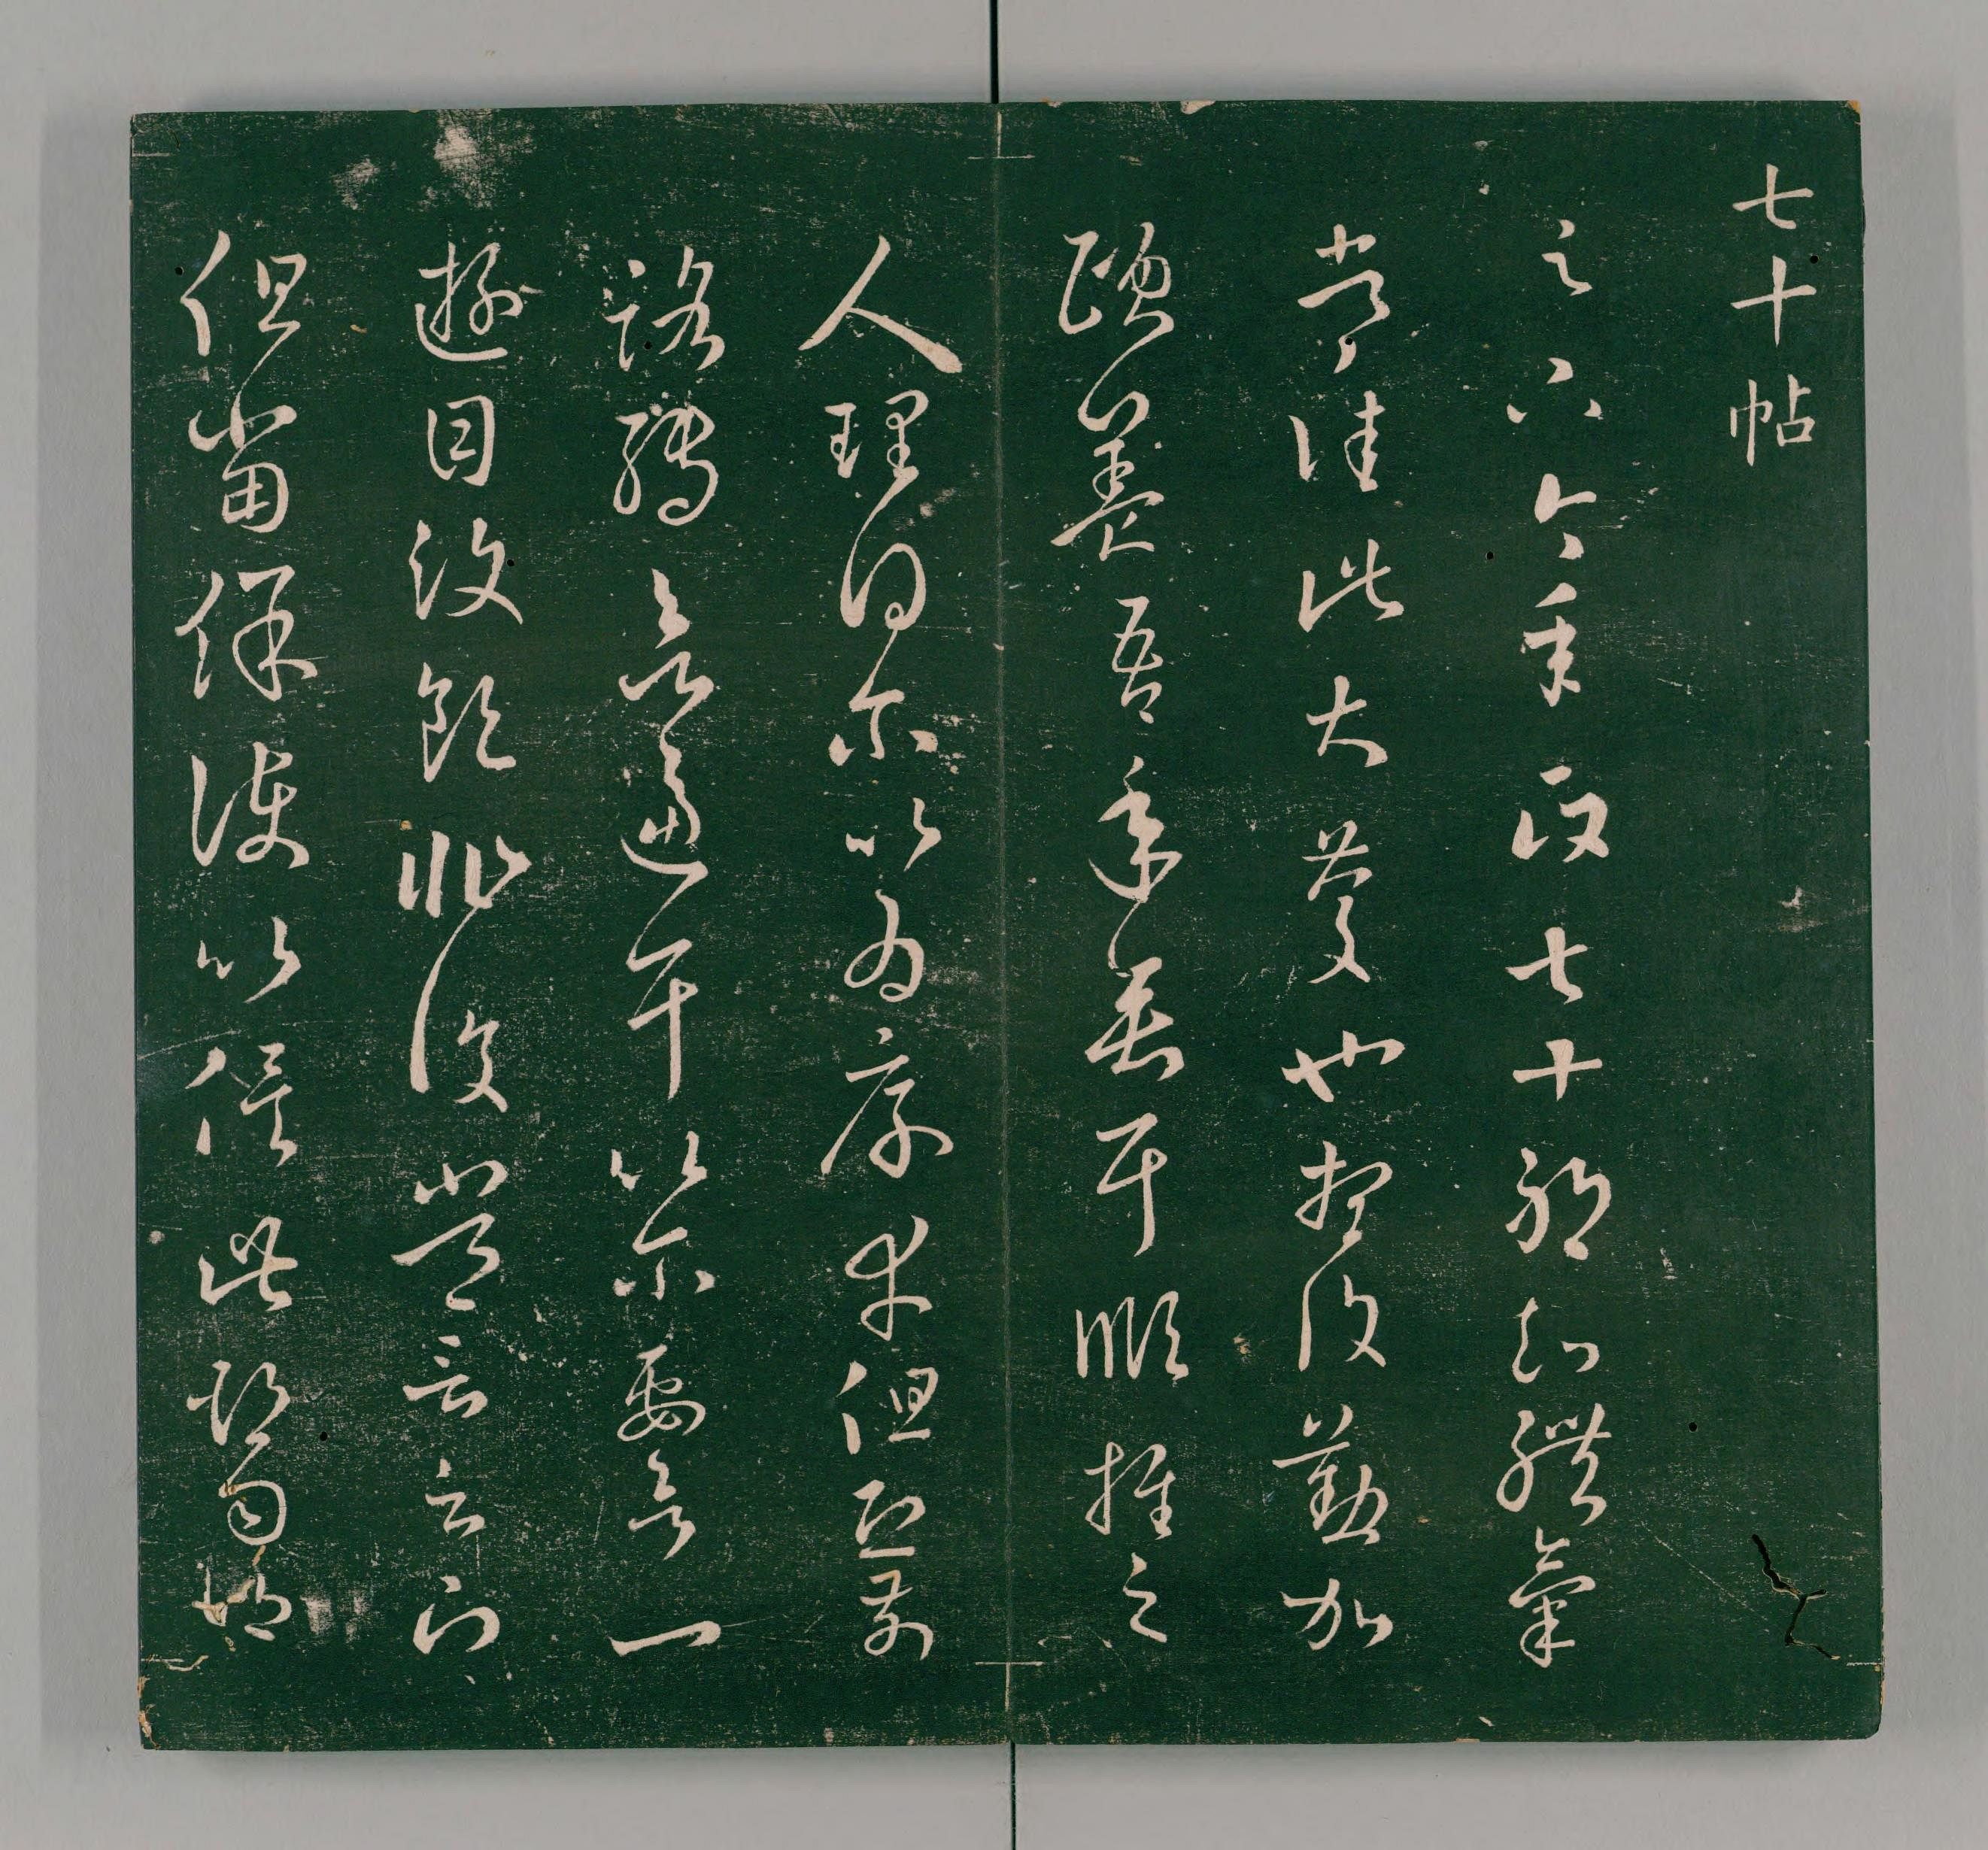 七十帖
足下今年政七十耶知體氣
常佳此大慶也想復懃加
頤養吾年垂耳順推之
人理得尔以為厚幸但恐前
路轉欲逼耳以尔要欲一
遊目汶領非復常言足下
但當保護以俟此期勿謂